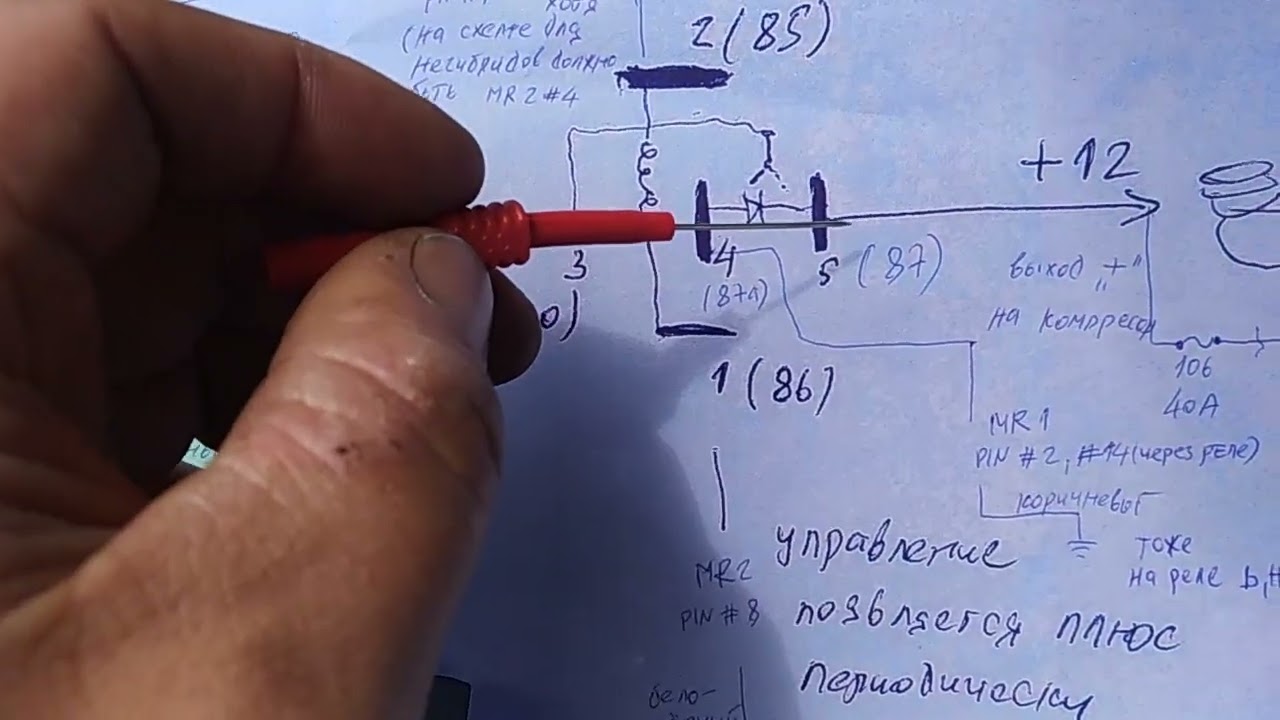 (на схеме для
негибридов должно
быть MR2 #4
2 (85)
+12
3
4
(87а)
5 (87)
выход "+"
на компрессо
1 (86)
106
40A
MR1
PIN #2, #14 (через реле)
коричневый
тоже
на реле
MR2
PIN #8
управление
появляется плюс
периодически
бело-